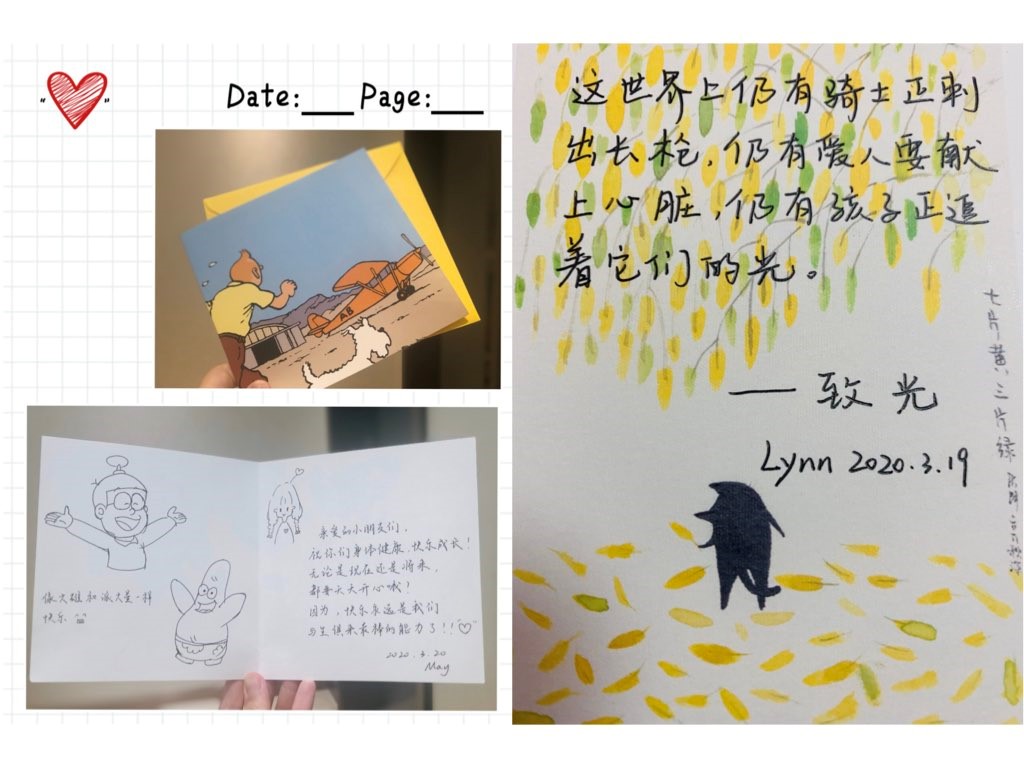 Date:___ Page:___
像大雄和派大星一样
快乐
亲爱的小朋友们，
祝你们身体健康、快乐成长！
无论是现在还是将来，
都要天天开心哦！
因为，快乐永远是我们
与生俱来最棒的能力了！！
2020.3.20
May
这世界上仍有骑士正刺
出长枪，仍有爱人要献
上心脏，仍有孩子正追
着它们的光。
——致光
Lynn 2020.3.19
七片黄三片绿